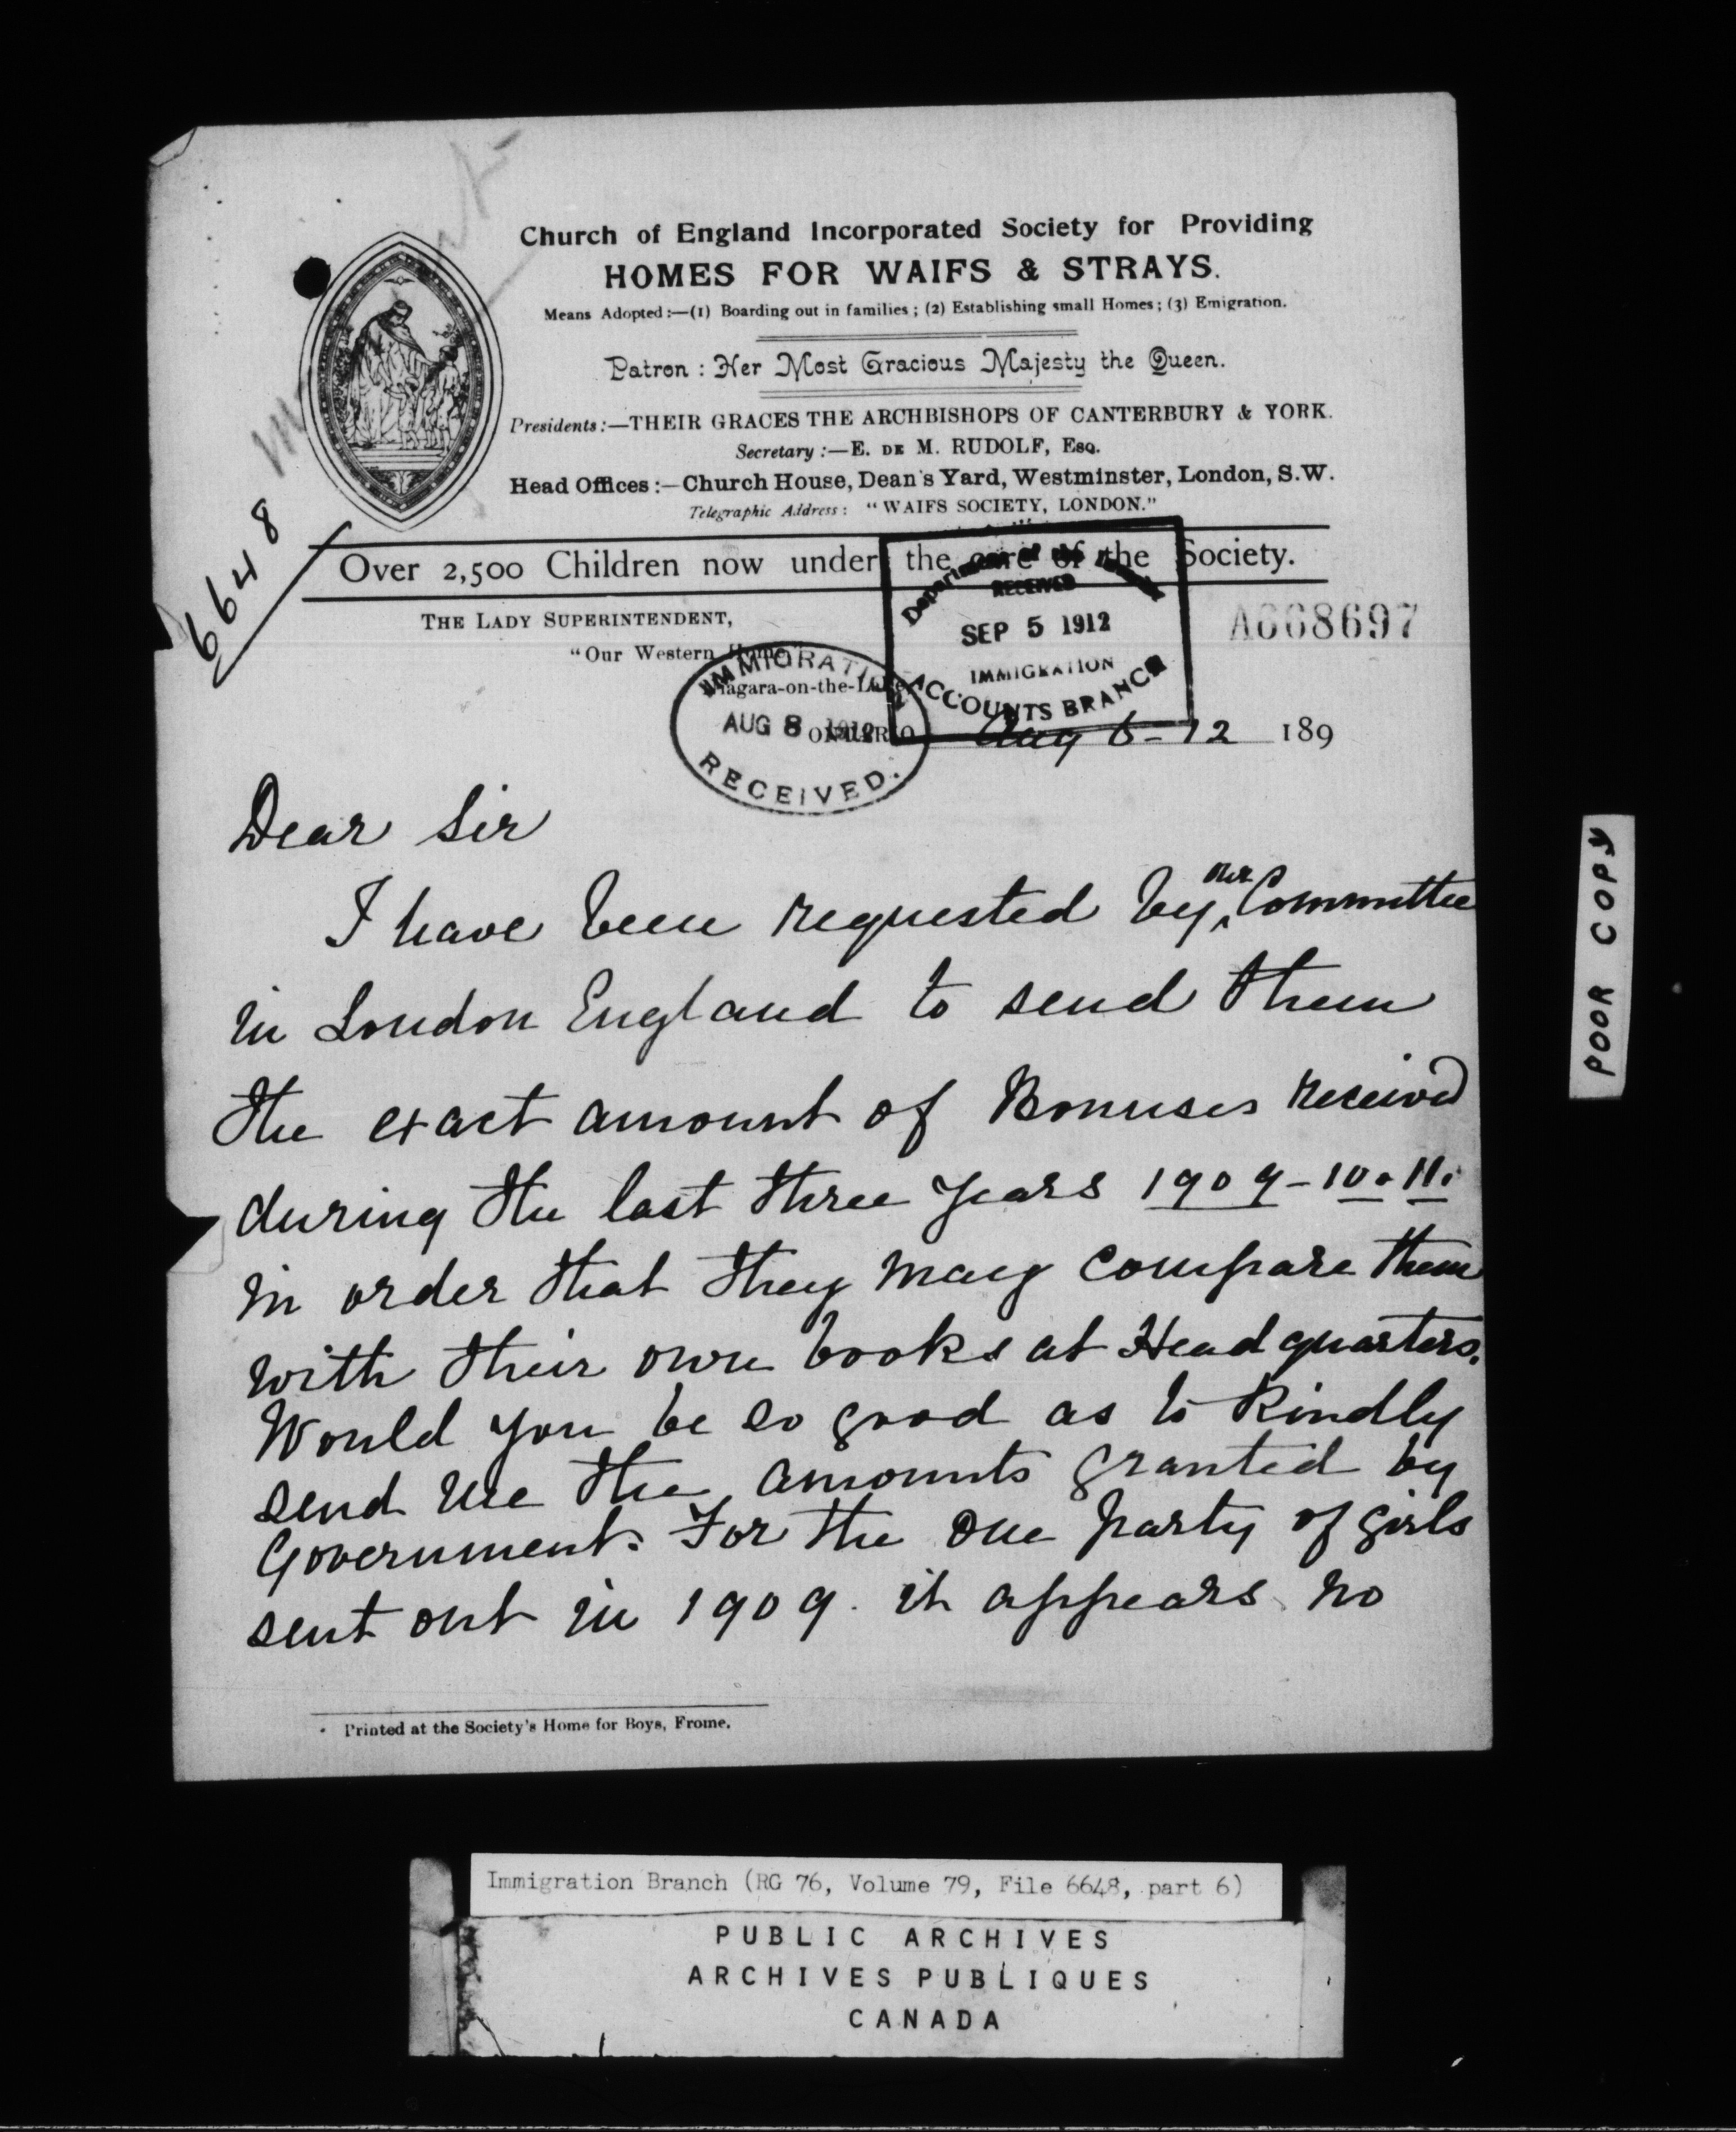 Church of England Incorporated Society for Providing
HOMES FOR WAIFS & STRAYS.
Means Adopted:—(1) Boarding out in families; (2) Establishing small Homes; (3) Emigration.
Patron: Her Most Gracious Majesty the Queen.
Presidents:—THEIR GRACES THE ARCHBISHOPS OF CANTERBURY & YORK.
Secretary:—E. DE M. RUDOLF, ESQ.
Head Offices:—Church House, Dean's Yard, Westminster, London, S.W.
Telegraphic Address: "WAIFS SOCIETY, LONDON."
6648
Over 2,500 Children now under the care of the Society.
THE LADY SUPERINTENDENT,
"Our Western Home"
Niagara-on-the-Lake
ONTARIO
IMMIGRATION
AUG 8 1912
RECEIVED.
RECEIVED
SEP 5 1912
IMMIGRATION
ACCOUNTS BRANCH
A668697
Aug 6-12 189
Dear Sir
I have been requested by our Committee
in London England to send them
the exact amount of Bonuses received
during the last three years 1909-10.11.
in order that they may compare them
with their own books at Headquarters.
Would you be so good as to kindly
send me the amounts granted by
Government. For the one party of girls
sent out in 1909. it appears no
Printed at the Society's Home for Boys, Frome.
POOR COPY
Immigration Branch (RG 76, Volume 79, File 6648, part 6)
PUBLIC ARCHIVES
ARCHIVES PUBLIQUES
CANADA